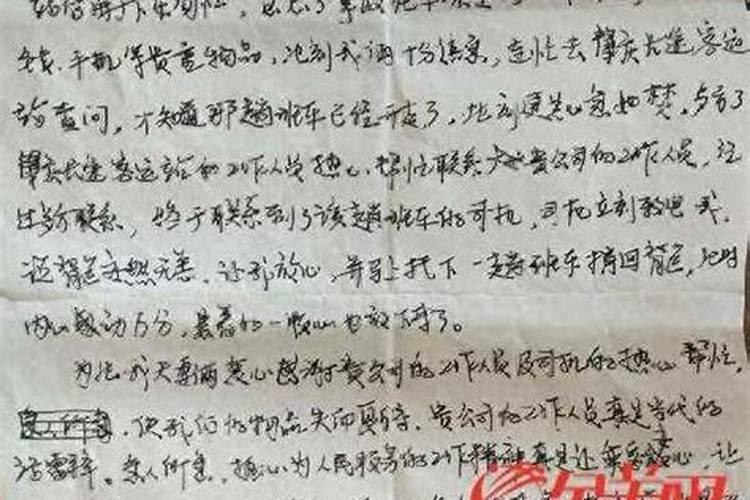 钱、手机等贵重物品，心刻我俩十分焦急，连忙去肇庆长途客运
站查问，才知道那趟班车已经开走了，此刻更是心急如焚，多亏了
肇庆长途客运站的工作人员热心，帮忙联系贵公司的工作人员，经
过多方联系，终于联系到了该趟班车的司机，司机立刻致电我，
证背包安然无恙，让我放心，并马上托下一趟班车捎回背包，此时
内心激动万分，悬着的一颗心也放下了。
为此我夫妻俩衷心感谢贵公司的工作人员及司机的热心帮忙，
使我们的物品失而复得，贵公司的工作人员真是当代的
活雷锋。急人所急，担心为人民服务的工作精神真是让乘客放心，让